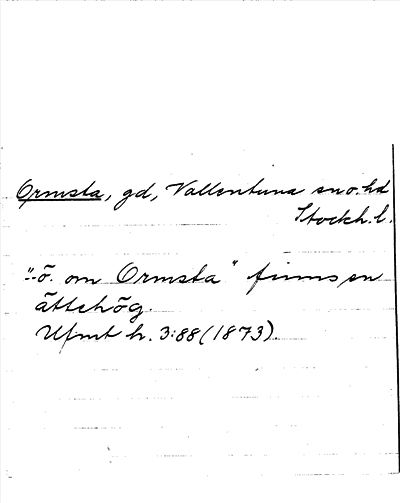 Ormsta, gd, Vallentuna sn o. hd
Stockh. l.
"-ö. om Ormsta" finns en
ättehög.
Ufmt h. 3:88 (1873).